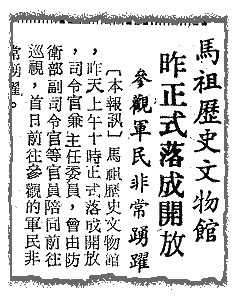 馬祖歷史文物館
昨正式落成開放
參觀軍民非常踴躍
〔本報訊〕馬祖歷史文物館
，昨天上午十時正式落成開放
，司令官兼主任委員，曾由防
衛部副司令官等官員陪同前往
巡視，首日前往參觀的軍民非
常踴躍。